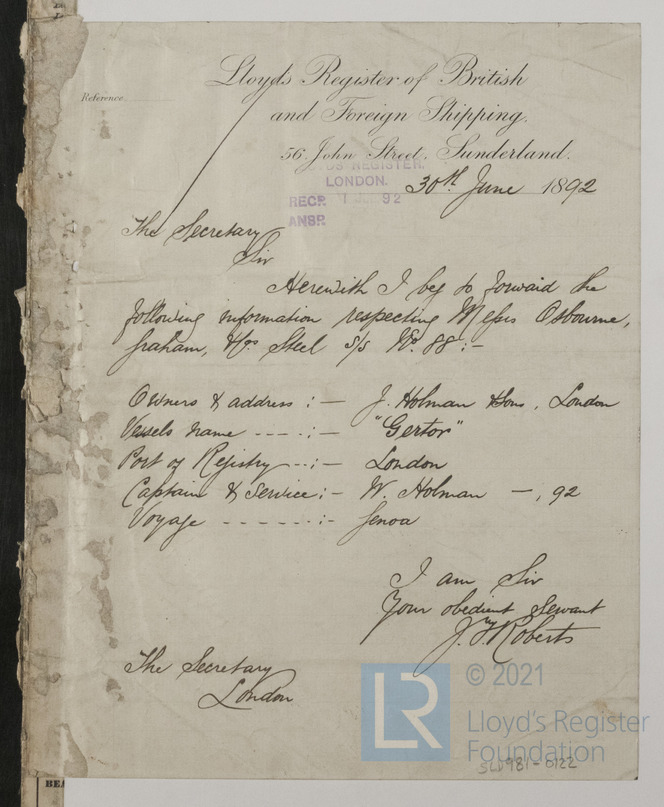 Lloyds Register of British
Reference
and Foreign Shipping.
56 John Street, Sunderland.
LLOYDS REGISTER.
LONDON.
30th June 1892
RECD. 1 JUL 92
ANSD.
The Secretary
Sir
Herewith I beg to forward the
following information respecting Messrs Osbourne,
Graham, &Cos Steel s/s No. 88:-
Owners & address :- J. Holman & Sons, London
Vessels name ----:- "Gertor"
Port of Registry --:- London
Captain & Service:- W. Holman -, 92
Voyage ------:- Genoa
I am Sir
Your obedient Servant
Roberts
The Secretary
London
LR
© 2021
Lloyd's Register
Foundation